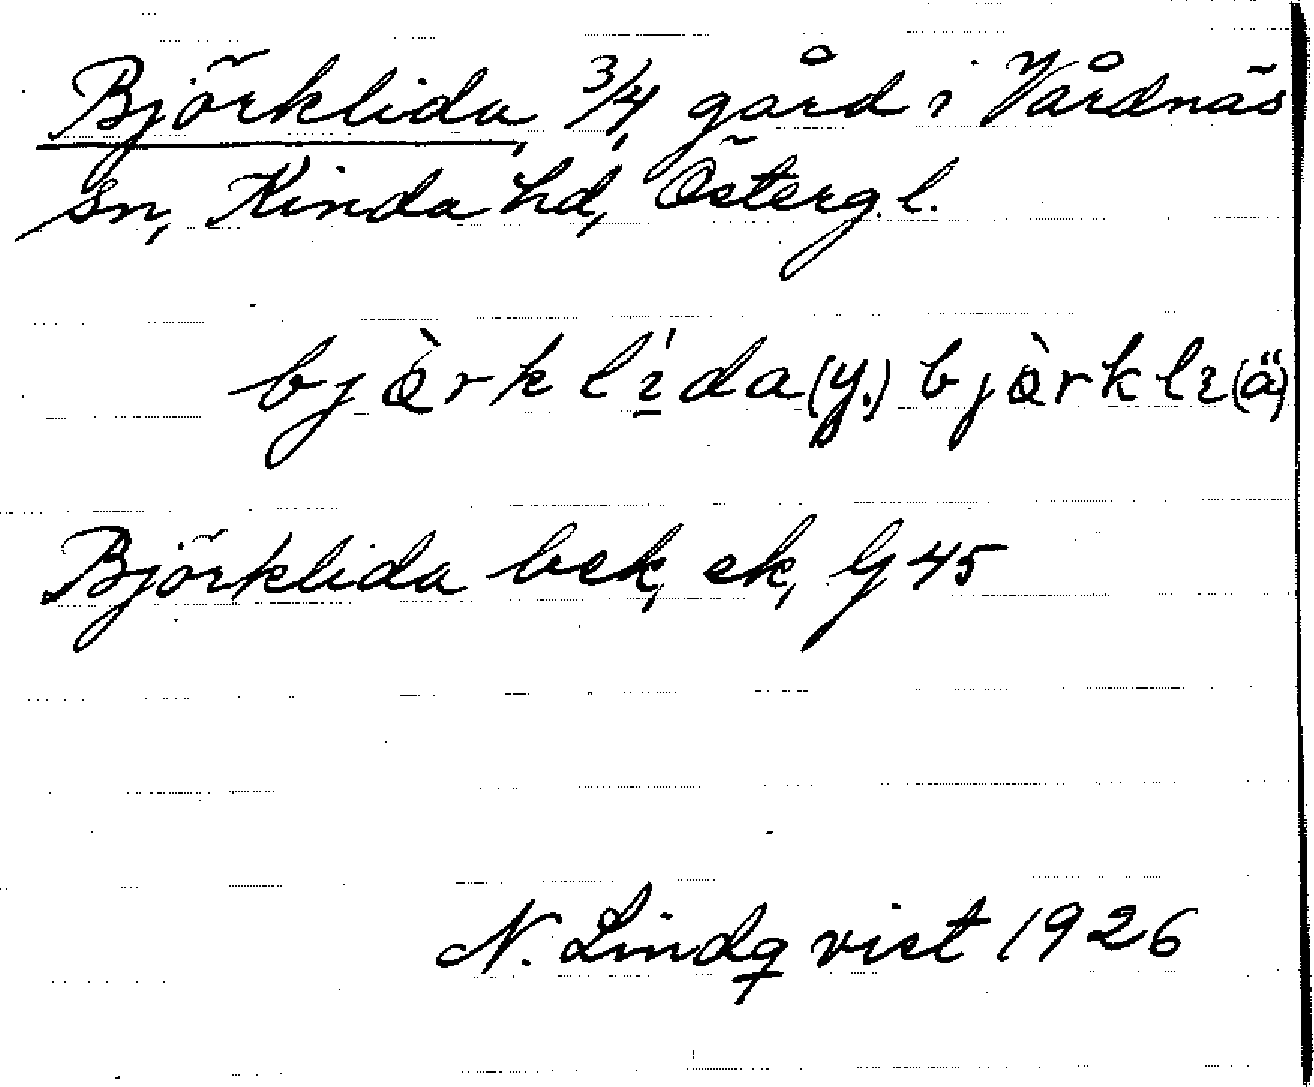 Björklida, 3/4 gård i Vårdnäs
sn, Kinda hd, Österg. l.
bjàrklída (y.) bjàrklı (ä)
Björklida bek, ek, Gj 45
N. Lindqvist 1926